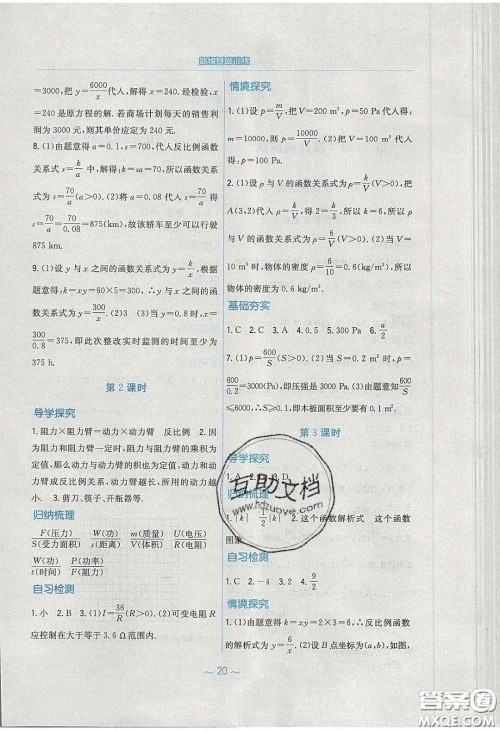 新编基础训练
=3000,把y=6000/x代入,解得:x=240.经检验,x
=240是原方程的解.若商场计划每天的销售利
润为3000元,则其单价应定为240元.
8.(1)由题意得a=0.1,s=700,代入反比例函数
关系式s=k/a中,解得:k=sa=70,所以函数关系
式为s=70/a(a>0).(2)将a=0.08代入s=70/a得:s
=70/a=70/0.08=875(km),故该轿车至少可行驶
875 km.
9.(1)设y与x之间的函数关系式为y=k/x,根据
题意得:k=xy=60×5=300,∴y与x之间的函数
关系式为y=300/x.(2)3 (3)当y=0.8时,x=
300/0.8=375,即此次整改实时监测的时间至少为
375 h.
第2课时
导学探究
1.阻力×阻力臂=动力×动力臂 反比例 2.因
为阻力和阻力臂一定,即阻力与阻力臂的乘积为
定值,那么动力与动力臂的积也为定值,动力臂和
动力成反比例函数关系,动力臂越长,所用的动力越
小. 3.剪刀、筷子、开瓶器等.
归纳梳理
F(压力) W(功) m(质量) U(电压)
S(受力面积) s(距离) V(体积) R(电阻)
W(功) P(功率)
t(时间) R(电阻)
自习检测
1.小 2.B 3.(1)I=36/R(R>0);(2)可变电阻R
应控制在大于等于3.6 Ω范围内.
情境探究
1.(1)设p=m/V,把V=200 m³,p=50 Pa代入得:
m=10000,则p=10000/V.(2)把V=100 m³代入,得
p=100 Pa.
2.(1)设ρ与V的函数关系式为ρ=k/V(V>0),把
A(3,2)代入,得2=k/3,所以k=6,所以ρ与V的
函数关系式为ρ=6/V(V>0);(2)把V=10 m³代入
得,物体的密度为ρ=6/10=0.6(kg/m³).所以此时
物体的密度为0.6 kg/m³.
基础夯实
1.C 2.C 3.A 4.0.5 5.300 Pa 6.a/2
7.(1)p=600/S(S>0).(2)当S=0.2 m²时,p=
600/0.2=3000(Pa),即压强是3000 Pa.(3)由题意知600/S
≤6000,∴S≥0.1,即木板面积至少要有0.1 m².
第3课时
导学探究
1.A
归纳梳理
1.|k| |k|/2 2.这个函数解析式 这个函数
图象
自习检测
1.C 2.-4 3.2 4.9/2
情境探究
1.(1)由题意得k=xy=2×3=6,∴反比例函数
的解析式为y=6/x.(2)设B点坐标为(a,b),如图,
互助文档
www.hdzuoye.com
~20~
答案圈
MXQE.COM